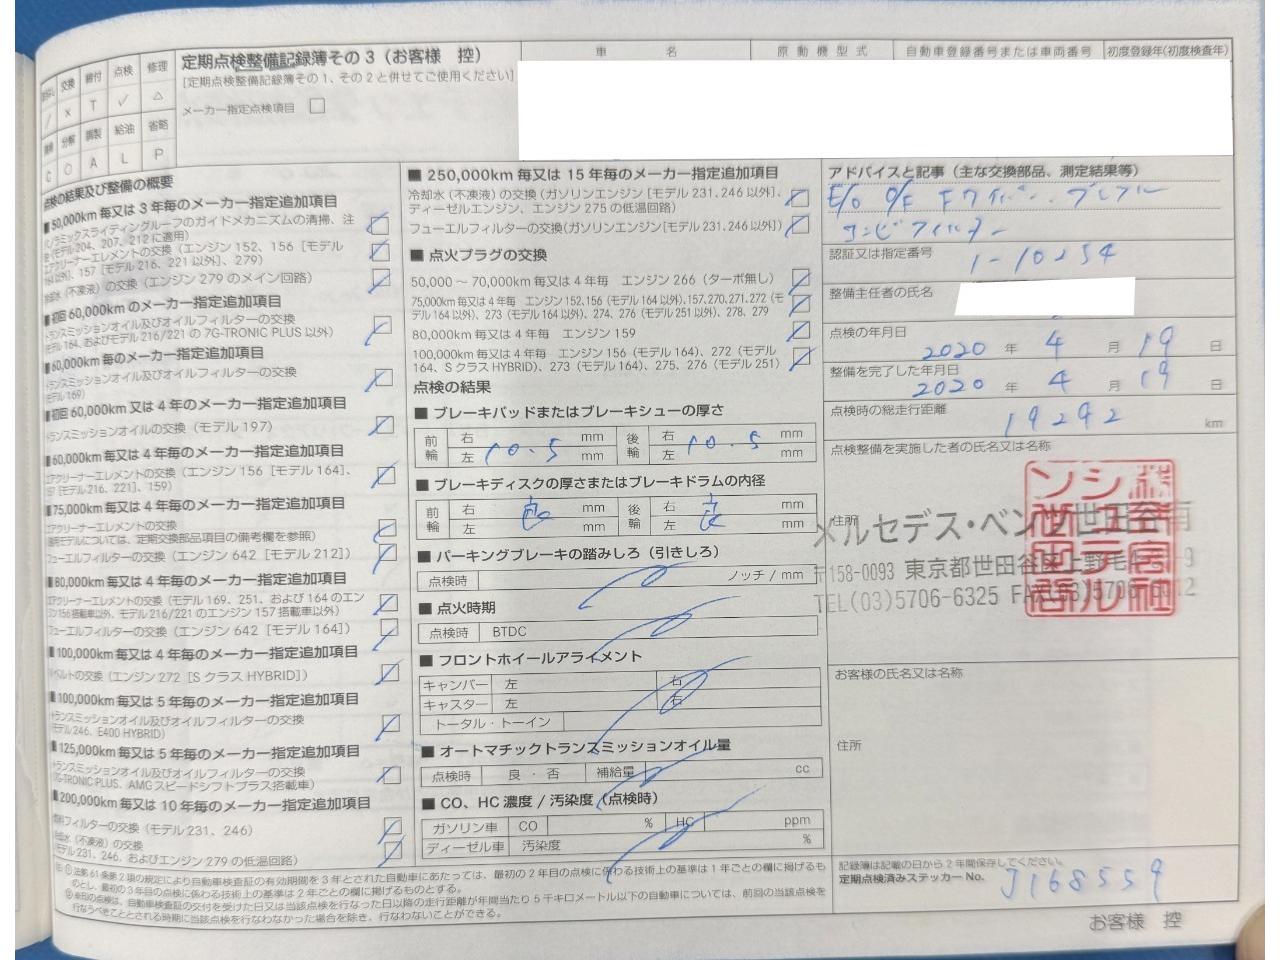 分解 交換 締付 点検 修理
/ × T ✓ △
清掃 分解 調製 給油 省略
C ○ A L P
定期点検整備記録簿その3(お客様 控)
[定期点検整備記録簿その1、その2と併せてご使用ください]
メーカー指定点検項目 □
車 名 原動機型式 自動車登録番号または車両番号 初度登録年(初度検査年)
点検の結果及び整備の概要
■50,000km毎又は3年毎のメーカー指定追加項目
パノラミックスライディングルーフのガイドメカニズムの清掃、注
油(モデル204、207、212に適用)
エアクリーナーエレメントの交換(エンジン152、156[モデル
164以外]、157[モデル216、221以外]、279)
冷却水(不凍液)の交換(エンジン279のメイン回路)
■初回60,000kmのメーカー指定追加項目
トランスミッションオイル及びオイルフィルターの交換
(モデル164、およびモデル216/221の7G-TRONIC PLUS以外)
■60,000km毎のメーカー指定追加項目
トランスミッションオイル及びオイルフィルターの交換
(モデル169)
■初回60,000km又は4年のメーカー指定追加項目
トランスミッションオイルの交換(モデル197)
■60,000km毎又は4年毎のメーカー指定追加項目
エアクリーナーエレメントの交換(エンジン156[モデル164]、
157[モデル216、221]、159)
■75,000km毎又は4年毎のメーカー指定追加項目
エアクリーナーエレメントの交換
(適用モデルについては、定期交換部品項目の備考欄を参照)
フューエルフィルターの交換(エンジン642[モデル212])
■80,000km毎又は4年毎のメーカー指定追加項目
エアクリーナーエレメントの交換(モデル169、251、および164のエン
ジン156搭載車以外、モデル216/221のエンジン157搭載車以外)
フューエルフィルターの交換(エンジン642[モデル164])
■100,000km毎又は4年毎のメーカー指定追加項目
Vベルトの交換(エンジン272[SクラスHYBRID])
■100,000km毎又は5年毎のメーカー指定追加項目
トランスミッションオイル及びオイルフィルターの交換
(モデル246、E400 HYBRID)
■125,000km毎又は5年毎のメーカー指定追加項目
トランスミッションオイル及びオイルフィルターの交換
(7G-TRONIC PLUS、AMGスピードシフトプラス搭載車)
■200,000km毎又は10年毎のメーカー指定追加項目
燃料フィルターの交換(モデル231、246)
冷却水(不凍液)の交換
(モデル231、246、およびエンジン279の低温回路)
■ 250,000km毎又は15年毎のメーカー指定追加項目
冷却水(不凍液)の交換(ガソリンエンジン[モデル231、246以外]、
ディーゼルエンジン、エンジン275の低温回路)
フューエルフィルターの交換(ガソリンエンジン[モデル231、246以外])
■ 点火プラグの交換
50,000~70,000km毎又は4年毎 エンジン266(ターボ無し)
75,000km毎又は4年毎 エンジン152、156(モデル164以外)、157、270、271、272(モ
デル164以外)、273(モデル164以外)、274、276(モデル251以外)、278、279
80,000km毎又は4年毎 エンジン159
100,000km毎又は4年毎 エンジン156(モデル164)、272(モデル
164、SクラスHYBRID)、273(モデル164)、275、276(モデル251)
点検の結果
■ ブレーキパッドまたはブレーキシューの厚さ
前輪 右 mm 後輪 右 mm
左 10.5 mm 左 10.5 mm
■ ブレーキディスクの厚さまたはブレーキドラムの内径
前輪 右 良 mm 後輪 右 良 mm
左 mm 左 mm
■ パーキングブレーキの踏みしろ(引きしろ)
点検時 ノッチ/mm
■ 点火時期
点検時 BTDC
■ フロントホイールアライメント
キャンバー 左 右
キャスター 左 右
トータル・トーイン
■ オートマチックトランスミッションオイル量
点検時 良・否 補給量 cc
■ CO、HC濃度/汚染度(点検時)
ガソリン車 CO % HC ppm
ディーゼル車 汚染度 %
アドバイスと記事(主な交換部品、測定結果等)
E/O O/F Fワイパー ブレフルー
コンビフィルター
認証又は指定番号
1-10254
整備主任者の氏名
点検の年月日
2020 年 4 月 19 日
整備を完了した年月日
2020 年 4 月 19 日
点検時の総走行距離
19292 km
点検整備を実施した者の氏名又は名称
住所
メルセデス・ベンツ世田谷南
〒158-0093 東京都世田谷区上野毛
TEL(03)5706-6325 FAX(03)5706
お客様の氏名又は名称
住所
注)①法第61条第2項の規定により自動車検査証の有効期間を3年とされた自動車にあたっては、最初の2年目の点検に係わる技術上の基準は1年ごとの欄に掲げるも
のとし、最初の3年目の点検に係わる技術上の基準は2年ごとの欄に掲げるものとする。
②※印の点検は、自動車検査証の交付を受けた日又は当該点検を行なった日以降の走行距離が年間当たり5千キロメートル以下の自動車については、前回の当該点検を
行なうべきこととされる時期に当該点検を行なわなかった場合を除き、行なわないことができる。
記録簿は記載の日から2年間保存してください。
定期点検済みステッカーNo. J168559
お客様 控